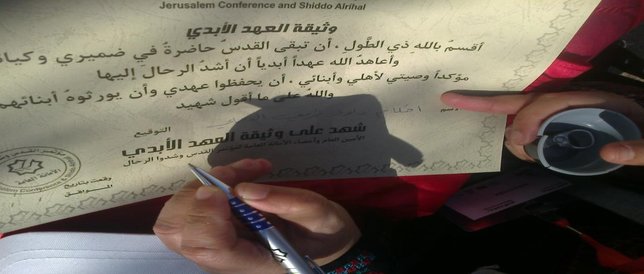 Jerusalem Conference and Shiddo Alrihal
وثيقة العهد الأبدي
أقسم بالله ذي الطَّول، أن تبقى القدسُ حاضرةً في ضميري وكيا
وأعاهدُ الله عهداً أبدياً أن أشدَّ الرحال إليها
مؤكداً وصيتي لأهلي وأبنائي، أن يحفظوا عهدي وأن يورثوهُ أبنائهم
واللهُ على ما أقول شهيد
التوقيع
شهد على وثيقة العهد الأبدي
الأمين العام وأعضاء الأمانة العامة لمؤتمر القدس وشدوا الرحال
وقعت بتاريخ
الموافق